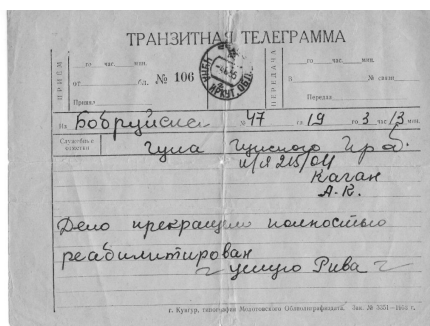 ТРАНЗИТНАЯ ТЕЛЕГРАММА
ПРИЁМ
го час. мин.
от бл. № 106
Принял
ЧУНА
ИРКУТ. ОБЛ.
ПЕРЕДАЧА
го час. мин.
№ связи
Передал
Из Бобруйска № 47 сл 19 го 3 час 13 мин.
Служебные отметки
Чуна Чунского Ирк об.
п/я 215/04
Каган
А-К.
Дело прекращено полностью
реабилитирован
целую Рива
г. Кунгур, типография Молотовского Облполиграфиздата. Зак. №